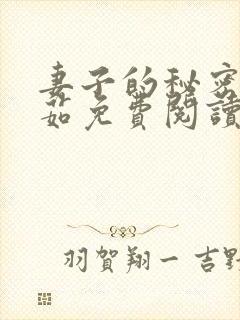 妻子的秘密
茹免費閱讀
羽賀翔一 吉野